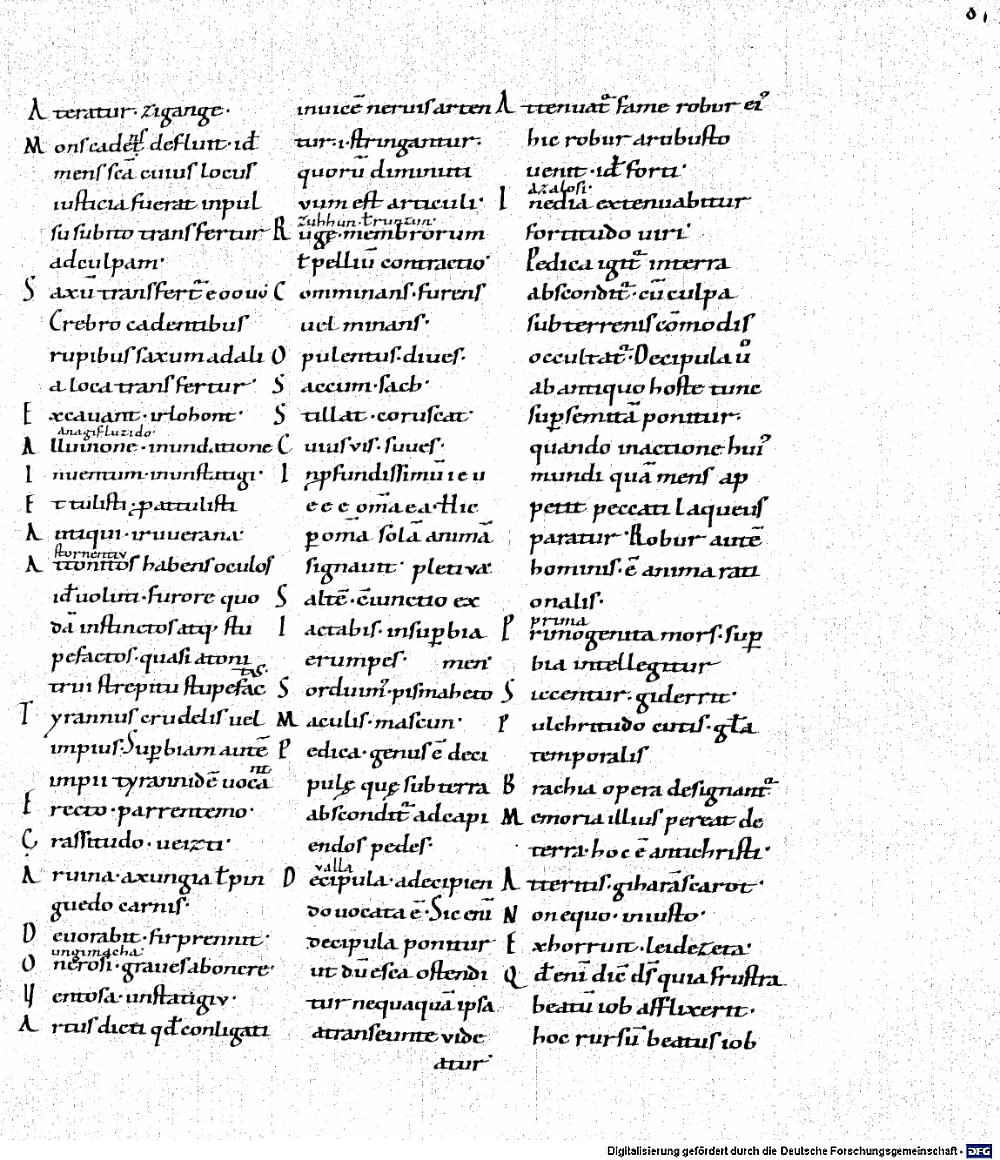 A teratur· zigange·
M ons cadeſ defluit· id̄
mens sc̄a cuius locus
iusticia fuerat inpul
su subito transfertur
ad culpam·
S axū transfert᷒
Crebro cadentibus
rupibus saxum ad ali
a loca transfertur·
E xcauant· irlohont·
anagifluzido·
A lluuione· inundatione
I nuentum· inunstatigi·
E t tulisti· p attulisti
A ntiqui· iruuerana·
stornentiv
A ttonitos habens oculos
id̄ uoluti· furore quo
dā instinctos atq; stu
pefactos· quasi a toni
trui strepitu stupefac tos·
T yrannus crudelis uel
impius· Supbiam autē
impii tyrannidē uoca nt
E recto· parrentemo·
C rassitudo· ueizti·
A ruina· axungia ł pin
guedo carnis·
D euorabit· firprennit·
ungimacha·
O nerosi· graues ab onere·
V entosa· unstatigiv·
A rtus dicti qd̄ conligati
inuicē neruis arten
tur· i· stringantur·
quorū diminuti
vum est articuli·
zuhhun· ł runzun·
R uge· membrorum
ł pelliū contractio·
C omminans· furens
uel minans·
O pulentus· diues·
S accum· sach·
S tillat· coruscat·
C uius vis· suues·
I npfundissimū
omā ea· Hic
p omā solā animā
signauit· pleti væ
S altē· c̄iunctio ex
I actabis· in supbia
erumpes· men·
S ordium᷒· pismaheto
M aculis· mascun·
P edica· genus ē deci
pulę quę sub terra
abscondit᷒ ad capi
endos pedes·
valla
D ecipula· a decipien
do uocata ē· Sic eni
decipula ponitur
ut dū esca ostendi
tur nequaquā ipsa
a transeunte vide
atur·
A ttenuat᷒ fame robur ei᷒
hic robur arbusto
uenit· id̄ forti·
azalosi·
I nedia extenuabitur
fortitudo uiri·
Pedica igit᷒ in terra
abscondit᷒· cū culpa
subterrenis cōmodis
occultat᷒· Decipula ū
ab antiquo hoste tunc
sup semitā ponitur·
quando in actione hui᷒
mundi quā mens ap
petit peccati laqueus
paratur· Robur autē
hominis· ē anima rati
onalis·
prima
P rimogenita mors· sup
bia intellegitur
S iccentur· giderrit·
P ulchritudo cutis· gła
temporalis
B rachia opera designant᷒
M emoria illius pereat de
terra· hoc ē antichristi·
A tteritis· giharāscarot·
N on equo· iniusto·
E xhorruit· leidezeta·
Q d̄ enī diē ds̄ quia frustra
beatū iob afflixerit·
hoc rursū beatus iob
Digitalisierung gefördert durch die Deutsche Forschungsgemeinschaft - DFG